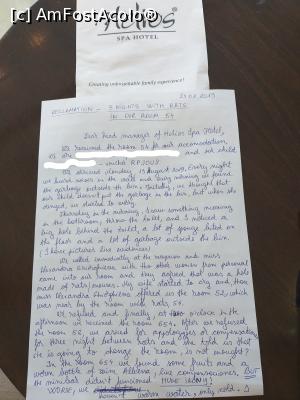 [c] AmFostAcolo®
Helios
SPA HOTEL
Creating unforgettable family experience!
2019
RECLAMATION - 3 NIGHTS WITH RATS
IN OUR ROOM 54
Dear head manager of Helios Spa Hotel,
We received the room 54 for our accomodation,
and child
We observed
we heard noises in the walls and every morning we found
the garbage outside the bin. Initially, we thought that
our child doesn't put the garbage in the bin, but when she
denied, we started to worry.
Thursday in the morning, I saw something moving
in the bathroom, between the toilet, and I noticed a
big hole behind the toilet, a lot of sponge bited on
the floor and a lot of garbage outside the bin.
(I have pictures like evidences)
We called immediately at the reception and miss
Alexandra with the other women from personal
came into our room and they agreed that was a hole
made of rats/mouses. My wife started to cry and then
miss Alexandra offered us the room 52, which
was near by the room with rats, 54.
We refused and finally, at o'clock in the
afternoon we received the room 654. After we refused
the room 52, we asked for apologises or compensation
for three nights between rats and she told us that
she is going to change the room, is not enough?
In the room 654 we found some fruits and a
bottle of wine Albena, like compensations, BUT
the minibar didn't functioned. HUGE IRONY!
WORSE, we
warm water, only cold.